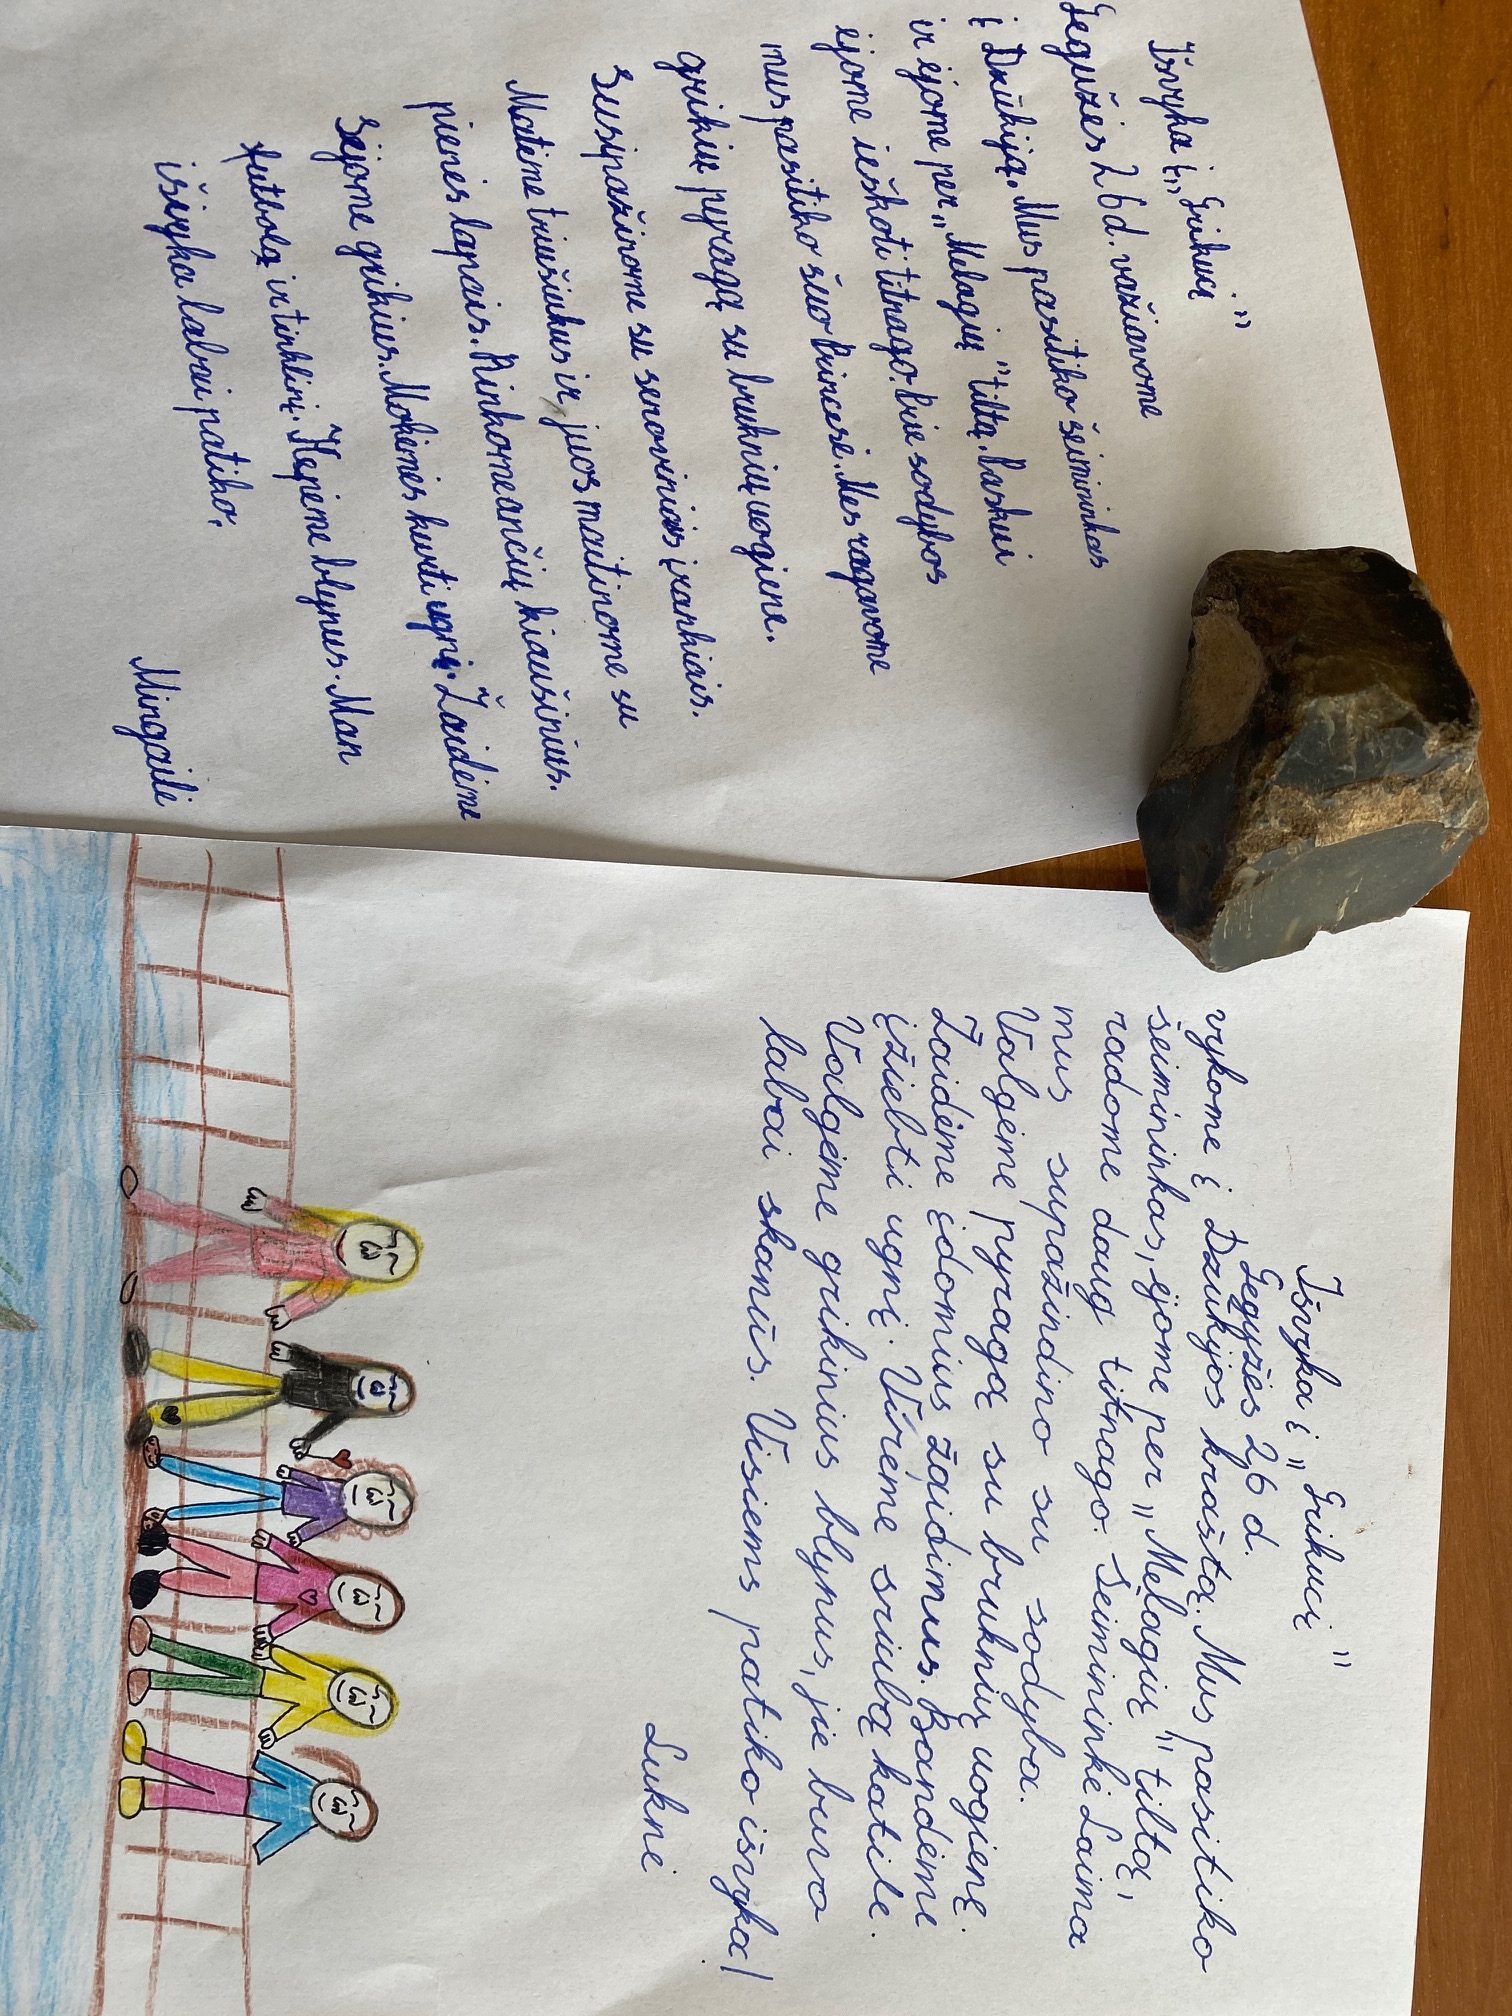 Išvyka į „Grikucį"
Gegužės 26 d. važiavome
į Dzūkiją. Mus pasitiko šeimininkas
ir ejome per „Melagių" tiltą. Paskui
ejome ieškoti titnago. Prie sodybos
mus pasitiko šuo Princese. Mes ragavome
grikių pyragą su bruknių uogiene.
Susipažinome su senoviniais įrankiais.
Matėme triušiukus ir juos maitinome su
pienės lapais. Rinkome ančių kiaušinius.
Sėjome grikius. Mokėmės kurti ugnį. Žaidėme
futbolą ir tinklinį. Kepėme blynus. Man
išvyka labai patiko.
Mingailė
Išvyka į „Grikucį"
Gegyžės 26 d.
vykome į Dzukijos kraštą. Mus pasitiko
šeimininkas, ejome per „Melagių" tiltą,
radome daug titnago. Šeimininkė Laima
mus supažindino su sodyba.
Valgėme pyragą su bruknių uogienę.
Žaidėme įdomius žaidimus. Bandėme
įžiebti ugnį. Virėme sriubą katile.
Valgėme grikinius blynus, jie buvo
labai skanūs. Visiems patiko išvyka!
Luknė